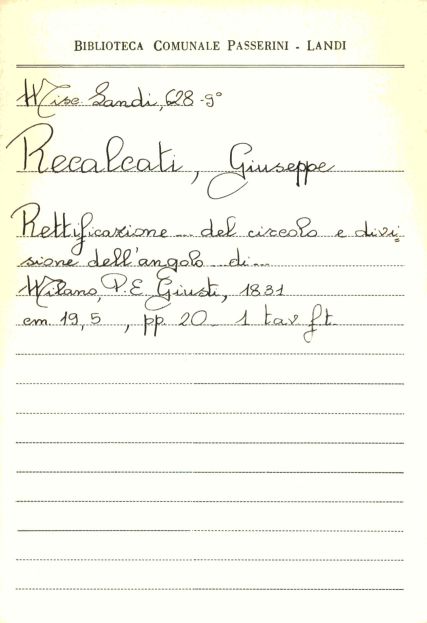 BIBLIOTECA COMUNALE PASSERINI - LANDI
Misc. Landi, 628-9°
Recalcati, Giuseppe
Rettificazione... del circolo e divi=
sione dell'angolo... di...
Milano, P.E. Giusti, 1831
cm. 19,5, pp. 20. 1 tav f.t.